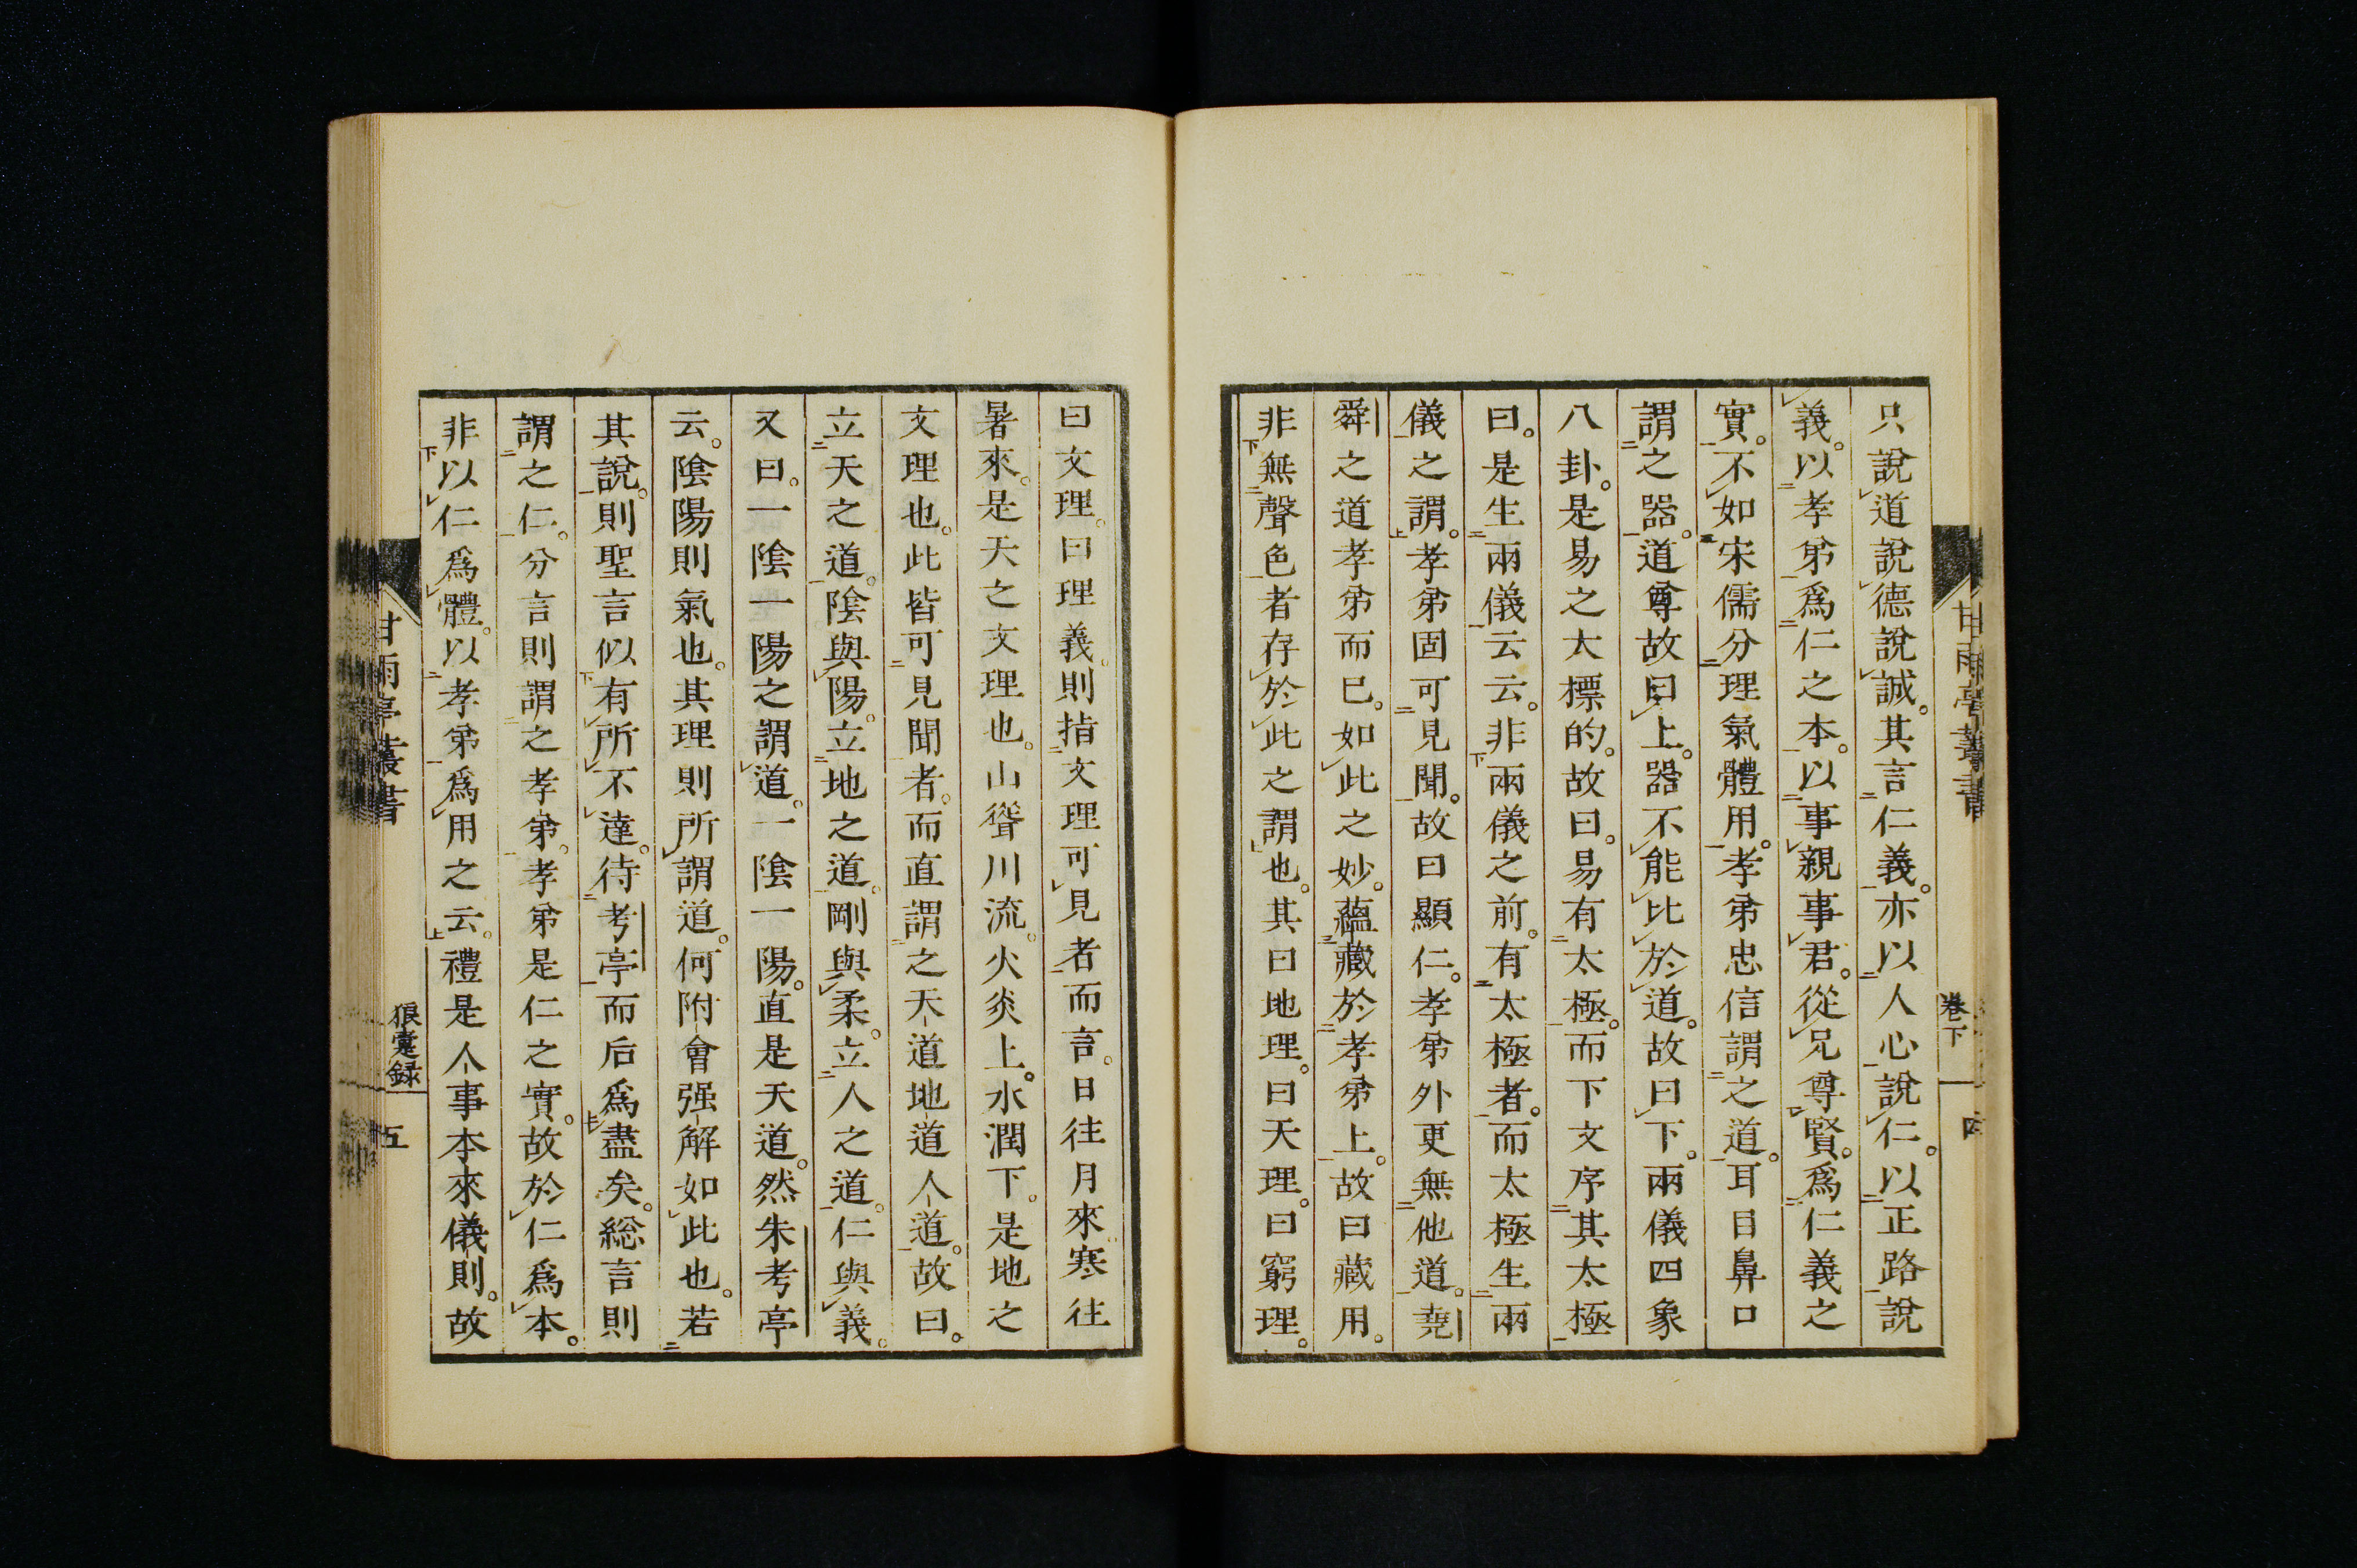 只說道說德說誠。其言仁義。亦以人心說仁。以正路說
義。以孝弟爲仁之本。以事親事君。從兄尊賢。爲仁義之
實。不如宋儒分理氣體用。孝弟忠信謂之道。耳目鼻口
謂之器。道尊故曰上。器不能比於道。故曰下。兩儀四象
八卦。是易之大標的。故曰。易有太極。而下文序其太極
曰。是生兩儀云云。非兩儀之前。有太極者。而太極生兩
儀之謂。孝弟固可見聞。故曰顯仁。孝弟外更無他道。堯
舜之道孝弟而已。如此之妙。蘊藏於孝弟上。故曰藏用。
非無聲色者存於此之謂也。其曰地理。曰天理。曰窮理。
曰文理。曰理義。則指文理可見者而言。日往月來寒往
暑來。是天之文理也。山聳川流。火炎上。水潤下。是地之
文理也。此皆可見聞者。而直謂之天道地道人道。故曰。
立天之道。陰與陽。立地之道。剛與柔。立人之道。仁與義。
又曰。一陰一陽之謂道。一陰一陽。直是天道。然朱考亭
云。陰陽則氣也。其理則所謂道。何附會强解如此也。若
其說。則聖言似有所不達。待考亭而后爲盡矣。総言則
謂之仁。分言則謂之孝弟。孝弟是仁之實。故於仁爲本。
非以仁爲體。以孝弟爲用之云。禮是人事本來儀則。故
甘雨亭叢書
卷下
四
甘雨亭叢書
狼疐録
五